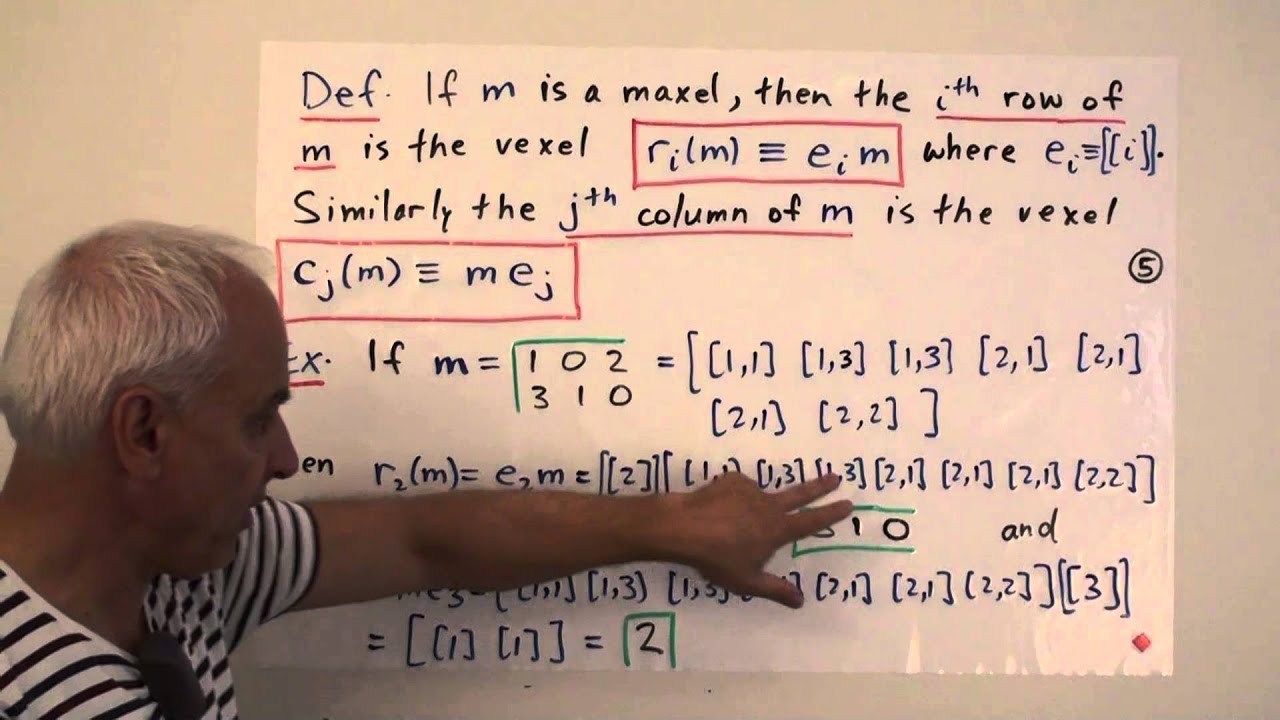 Def. If m is a maxel, then the iᵗʰ row of
m is the vexel rᵢ(m) ≡ eᵢ m where eᵢ≡[[i]].
Similarly the jᵗʰ column of m is the vexel
cⱼ(m) ≡ m eⱼ
⑤
Ex. If m = 1 0 2 = [[1,1] [1,3] [1,3] [2,1] [2,1]
3 1 0 [2,1] [2,2] ]
r₂(m) = e₂m = [[2]][ [1,1] [1,3] [1,3] [2,1] [2,1] [2,1] [2,2]]
1 0 and
[1,1] [1,3] [2,1] [2,1] [2,2]][[3]]
= [[1] [1]] = 2